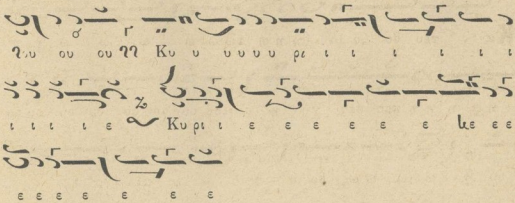 ου ου ου Κυ υ υ υ υ υ ρι ι ι ι ι ι ι ι
ι ι ι ι ε Κυ ρι ι ε ε ε ε ε ε ε ε ε
ε ε ε ε ε ε ε